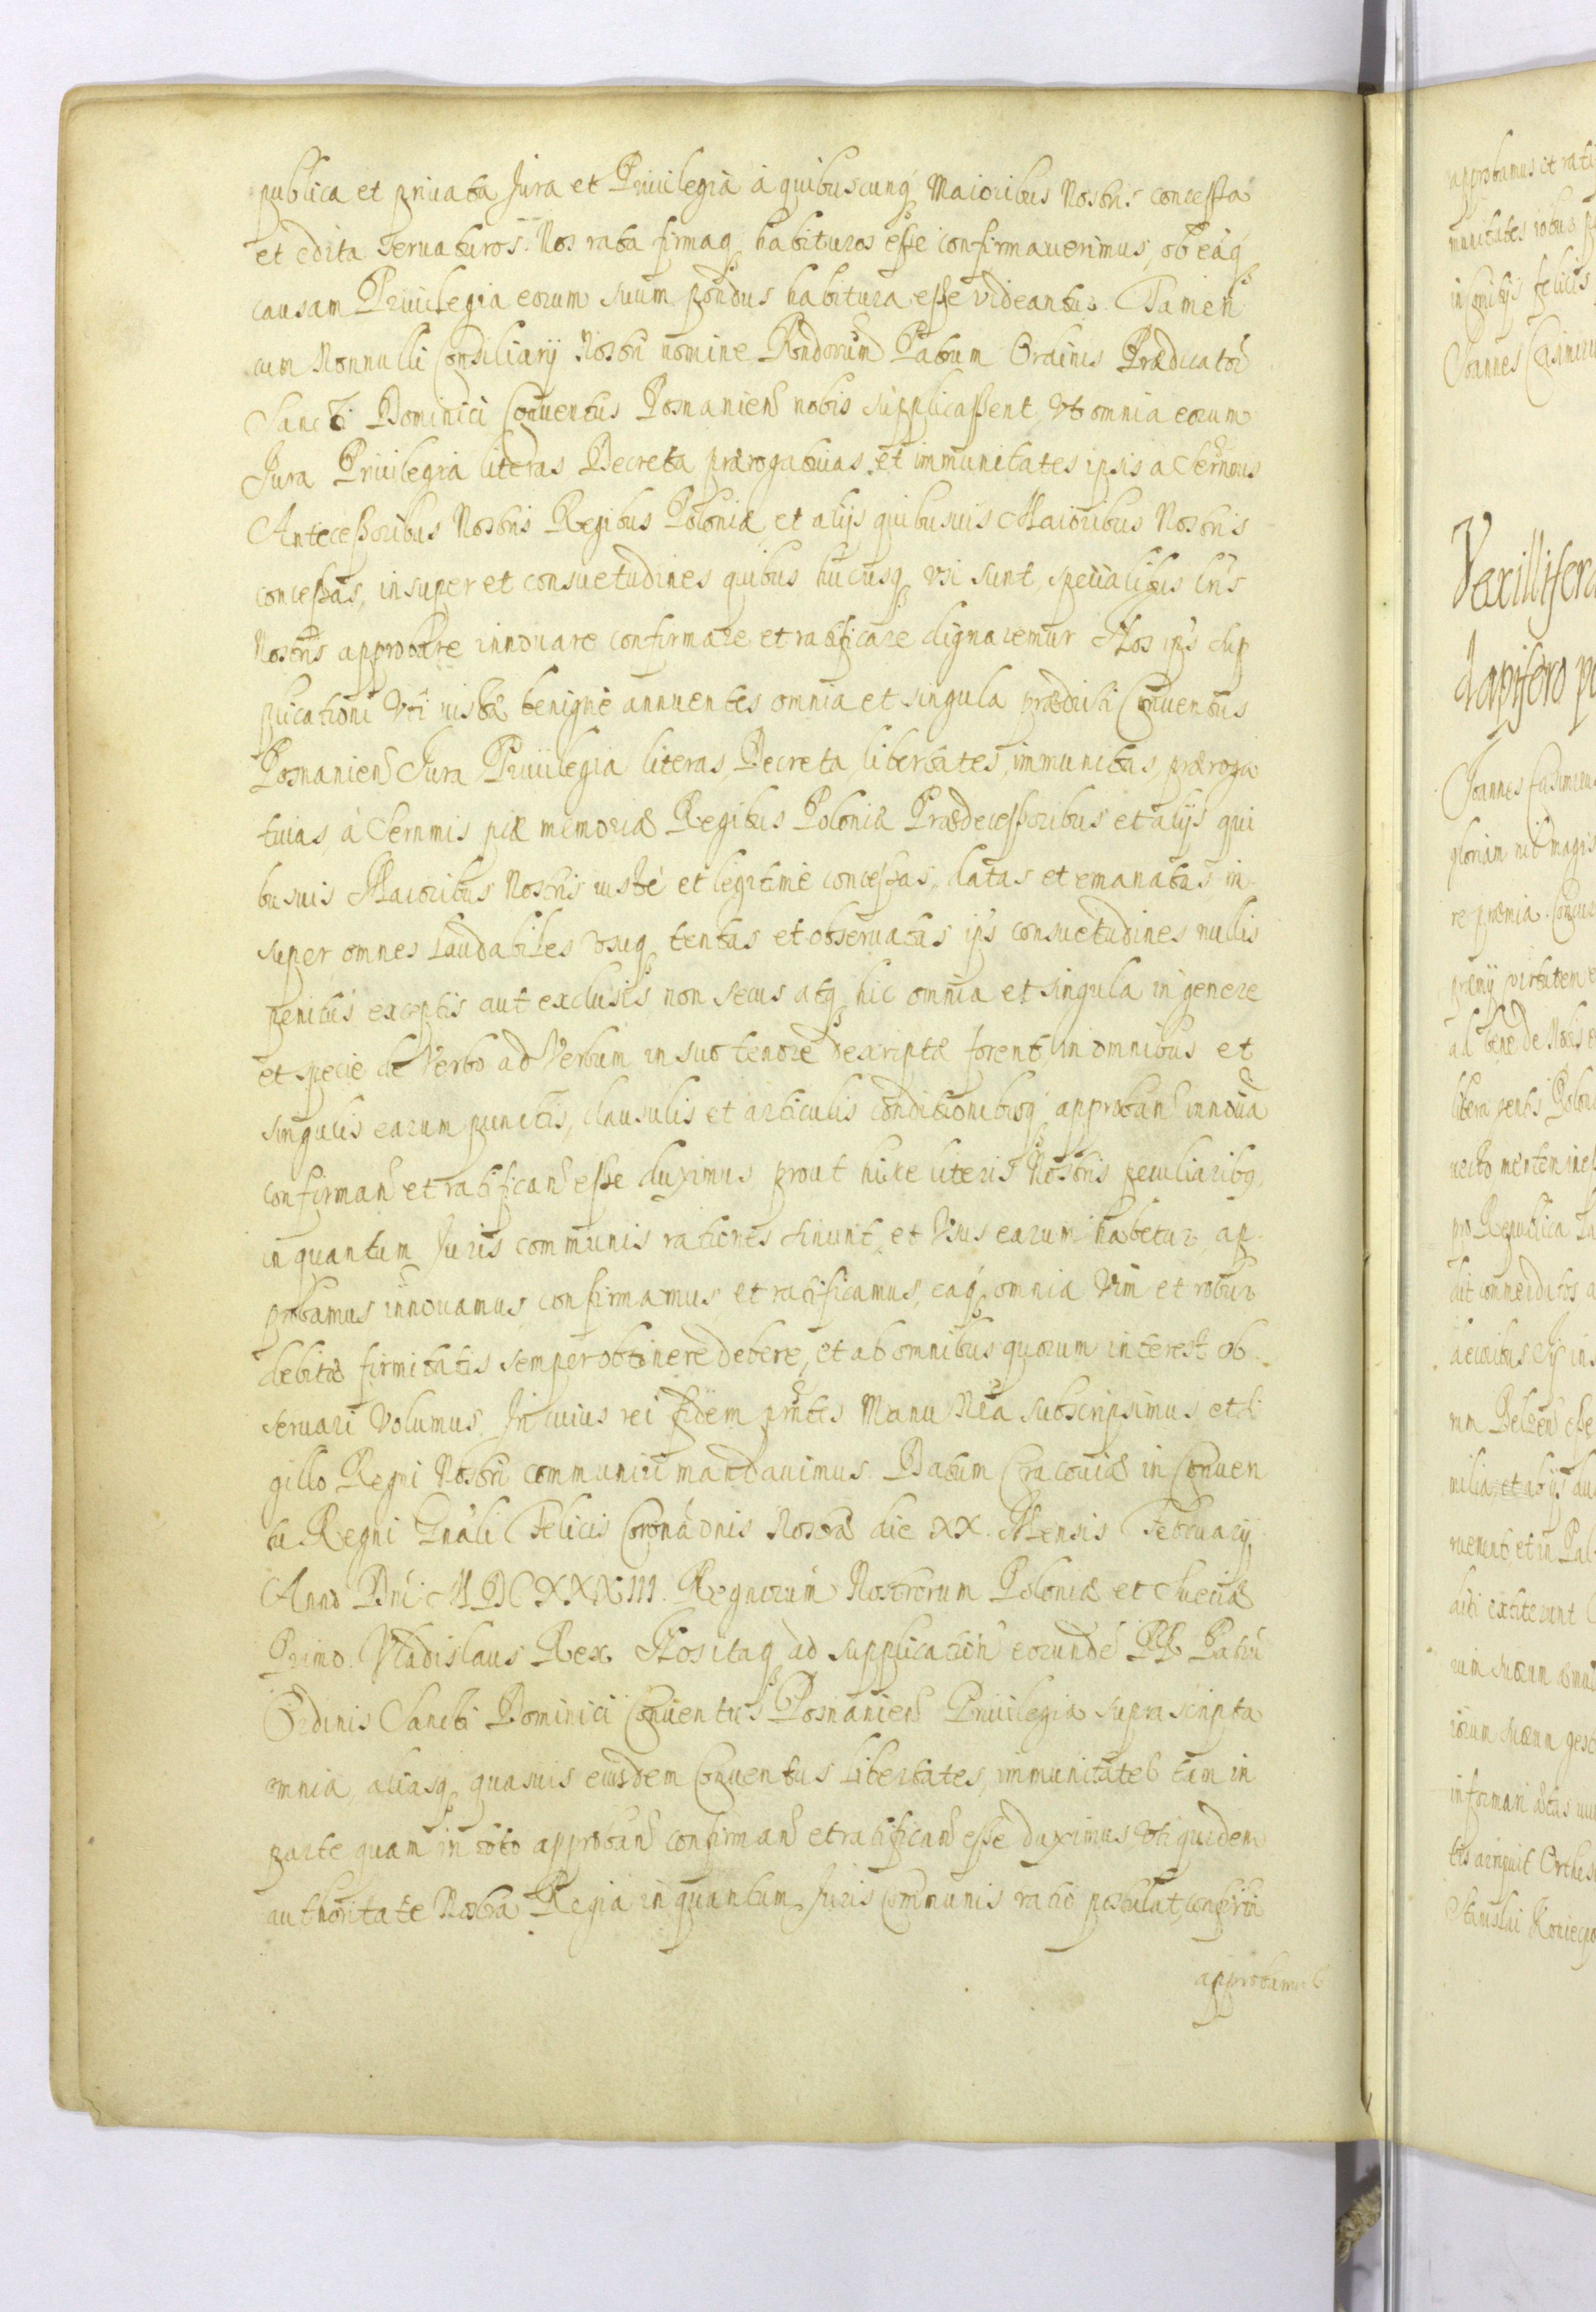 publica et priuata Jura et Priuilegia à quibuscunq; Maioribus Nostris concessa
et edita seruaturos. Nos rata firmaq; habituros esse confirmauerimus, ob eaq;
causam Priuilegia eorum suum pondus habitura esse videantur. Tamen
cum Nonnulli Consiliarij Nostri nomine Rndorum Patrum Ordinis Prædicator
Sancti Dominici Conuentus Posnanien nobis supplicassent, Vt omnia eorum
Jura Priuilegia literas Decreta prærogatiuas et immunitates ipsis a Sernmis
Antecessoribus Nostris Regibus Poloniæ et alijs quibusuis Maioribus Nostris
concessas, insuper et consuetudines quibus hucusq; vsi sunt, specialibus lris
Nostris approbare innouare confirmare et ratificare dignaremur Nos ipsi sup
plicationi Vti iustæ benigne annuentes omnia et singula prædicti Conuentus
Posnanien Jura Priuilegia literas, Decreta, libertates, immunitas, præroga
tiuas, à Sernmis piæ memoriæ Regibus Poloniæ Prædecessoribus et alijs qui
busuis Maioribus Nostris iuste et legitimè concessas, datas et emanatas in
super omnes laudabiles vsuq; tentas et obseruatas ips consuetudines nullis
penitus exceptis aut exclusis, non secus atq; hic omnia et singula in genere
et specie de Verbo ad Verbum in suo tenore descripta forent, in omnibus et
singulis earum punctis, clausulis et articulis conditionibusq; approban innoua
confirman et ratifican esse duximus prout hisce literis Nostris peculiaribq;
in quantum Juris communis rationes sinunt, et Vsus earum habetur, ap
probamus innouamus, confirmamus et ratificamus, eaq; omnia Vim et robur
debitæ firmitatis semper obtinere debere, et ab omnibus quorum interest ob
seruari Volumus. In cuius rei fidem pntes Manu Nra subscripsimus et si
gillo Regni Nostri communiri mandauimus. Datum Cracouiæ in Conuen
tu Regni Gnali Felicis Coronaonis Nostræ die XX. Mensis February
Anno Dni MDCXXXIII. Regnorum Nostrorum Poloniæ et Sueciæ
Primo. Vladislaus Rex. Nos itaq; ad supplicationē eorundē RR Patrū
Ordinis Sancti Dominici Conuentus Posnanien Priuilegia supra scripta
omnia, aliasq; quasuis eiusdem Conuentus libertates, immunitates tam in
parte quam in toto approban confirman et ratifican esse duximus, Vti quidem
authoritate Nostra Regia in quantum Juris communis ratio postulat, confirm
approbamus
approbamus et rati
munitates robur
in Comitijs felicis
Joannes Casimirus
Vexillifera
dapifero
Joannes Casimirus
gloriam nil magis
re præmia.
præmij virtutem
ad bene de Nobis
libera gentis Polon
pro Republica
milia et ab ijs
ruerunt et in Pal
aliti extiterunt
informari
tis arripuit
Stanislai Koniecpo